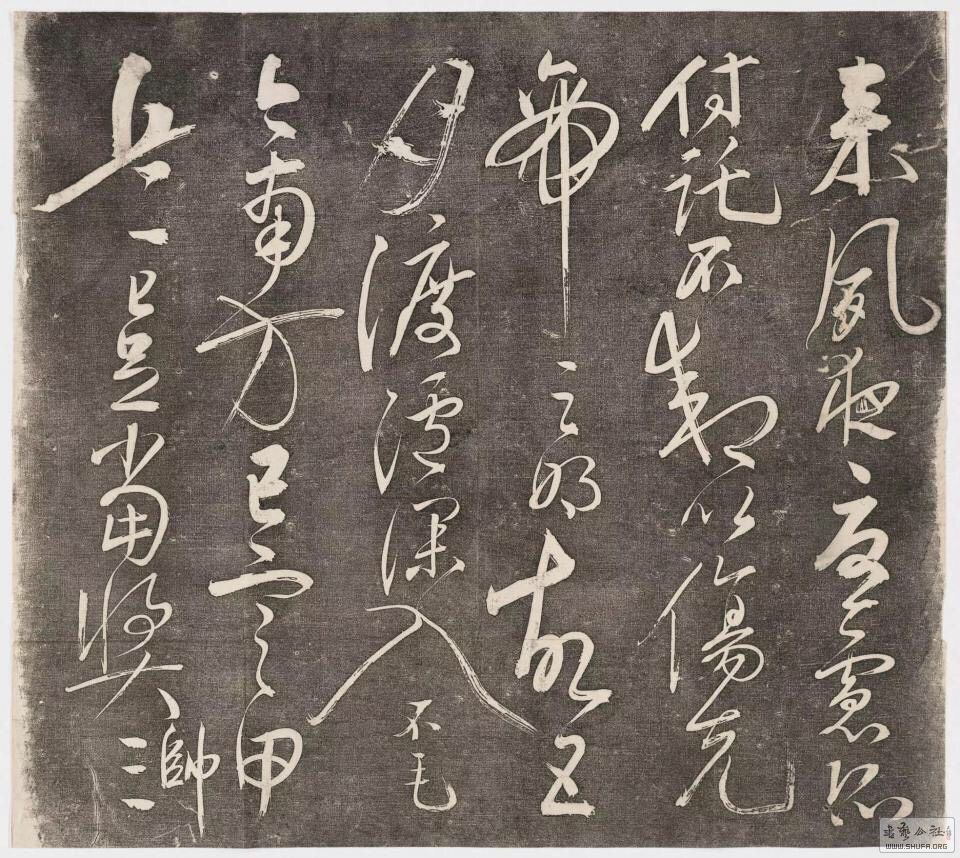 来夙夜憂慮恐
付託不效以傷先
帝之明故五
月渡瀘深入不毛
今南方已定甲
兵已足當獎帥三
WWW.SHUFA.ORG